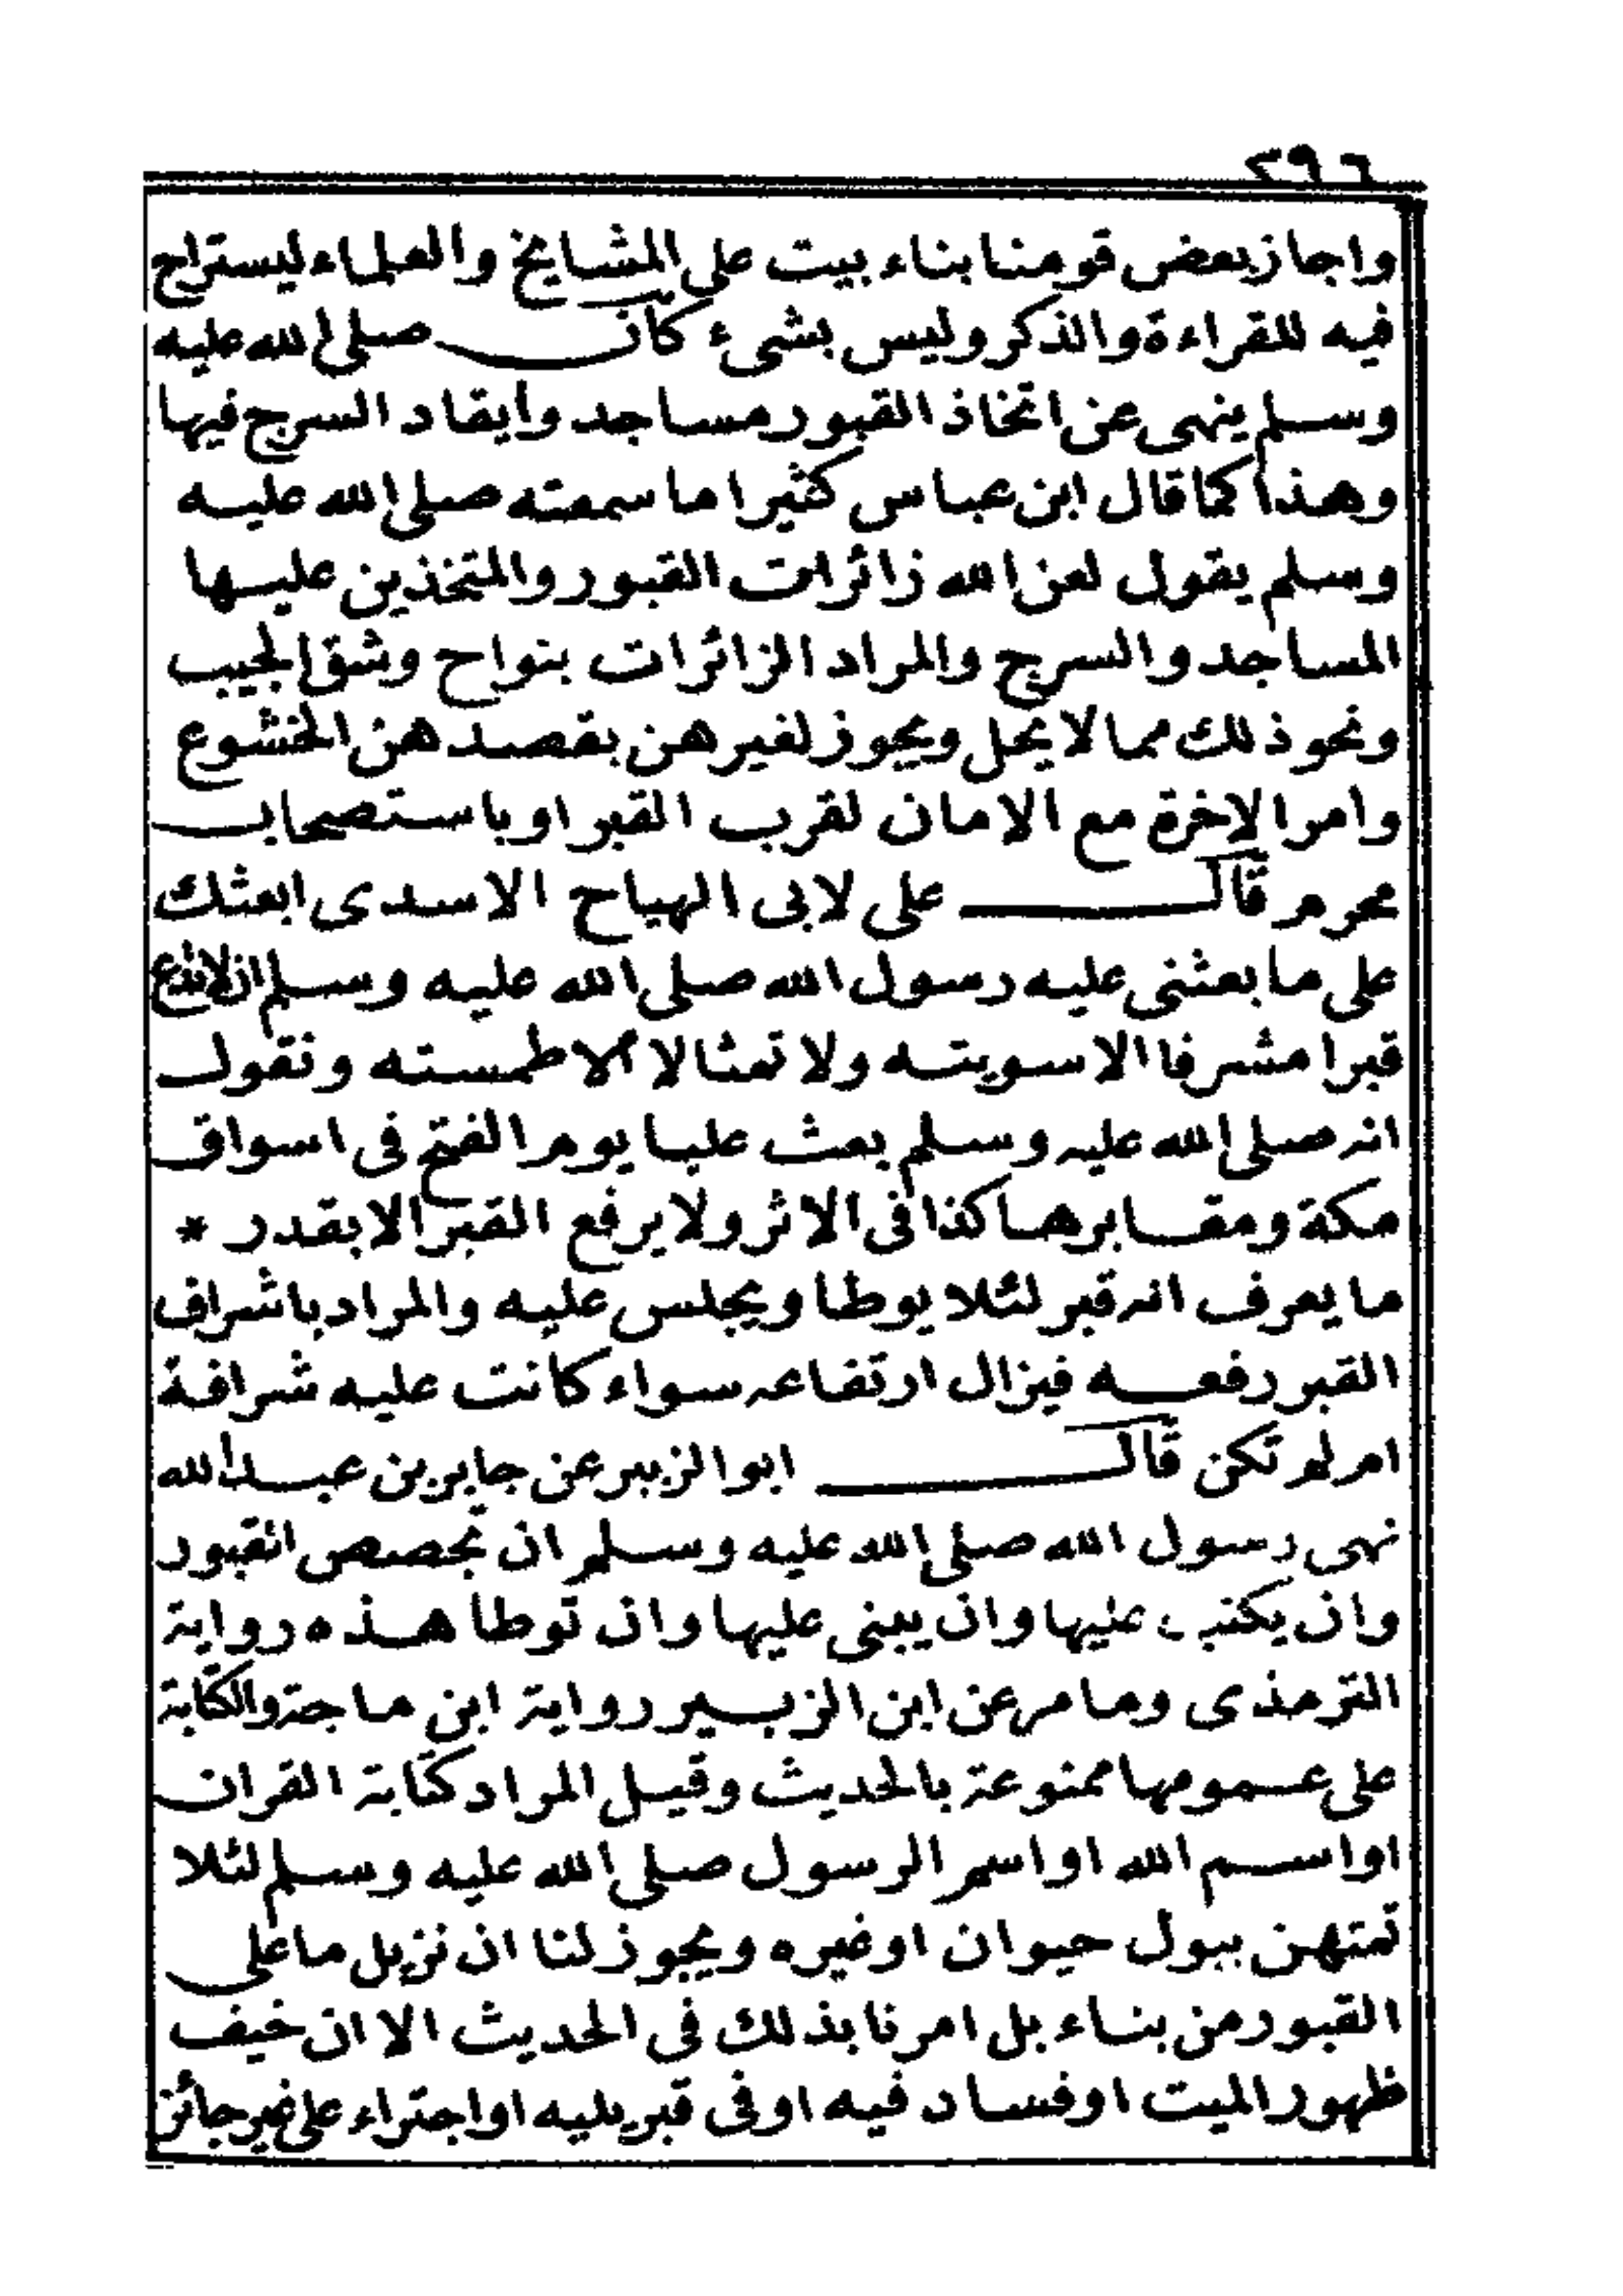 ٢٩٦
واجاز بعض قومنا بناء بيت على المشايخ والعلماء ليستراح
فيه للقراءة والذكر وليس بشىء كان صلى الله عليه
وسلم ينهى عن اتخاذ القبور مساجد وايقاد السرج فيها
وهذا كما قال ابن عباس كثيرا ما سمعته صلى الله عليه
وسلم يقول لعن الله زائرات القبور والمتخذين عليها
المساجد والسرج والمراد الزائرات بنواح وشق الجيب
ونحو ذلك مما لا يحل ويجوز لغيرهن بقصدهن الخشوع
وامر الاخرة مع الامان لقرب القبر او باستصحاب
محرم قال على لابى الهياج الاسدى ابعثك
على ما بعثنى عليه رسول الله صلى الله عليه وسلم ان لا تدع
قبرا مشرفا الا سويته ولا تمثالا الا طمسته ونقول
انه صلى الله عليه وسلم بعث عليا يوم الفتح فى اسواق
مكة ومقابرها كذا فى الاثر ولا يرفع القبر الا بقدر *
ما يعرف انه قبر لئلا يوطا ويجلس عليه والمراد باشراف
القبر رفعه فيزال ارتفاعه سواء كانت عليه شرافة
ام لم تكن قال ابو الزبير عن جابر بن عبد الله
نهى رسول الله صلى الله عليه وسلم ان تجصص القبور
وان يكتب عليها وان يبنى عليها وان توطا هذه رواية
الترمذى وما مر عن ابن الزبير رواية ابن ماجة والكتابة
على عمومها ممنوعة بالحديث وقيل المراد كتابة القران
او اسم الله او اسم الرسول صلى الله عليه وسلم لئلا
تمتهن ببول حيوان او غيره ويجوز لنا ان نزيل ما على
القبور من بناء بل امرنا بذلك فى الحديث الا ان خيف
ظهور الميت او فساد فيه او فى قبر يليه او اجتراء على غير جائز